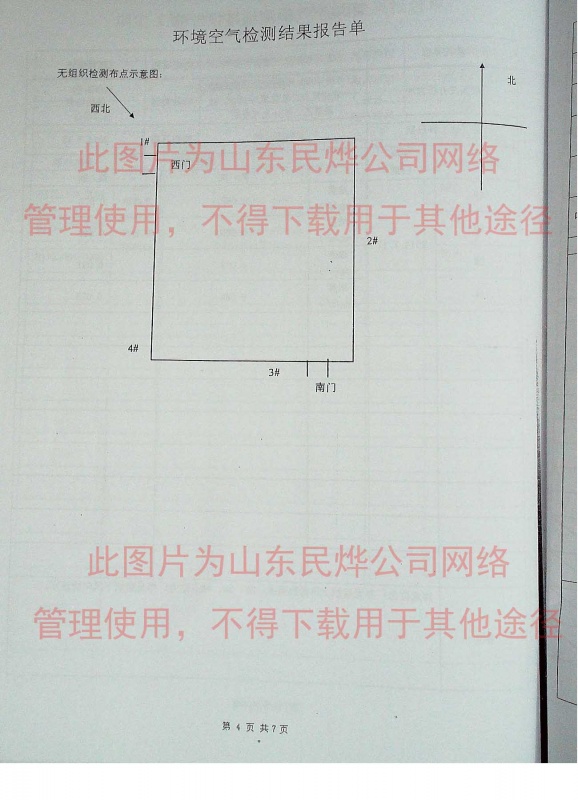 环境空气检测结果报告单
无组织检测布点示意图:
北
西北
1#
此图片为山东民烨公司网络
西门
管理使用，不得下载用于其他途径
2#
4#
3#
南门
此图片为山东民烨公司网络
管理使用，不得下载用于其他途径
第 4 页 共7页